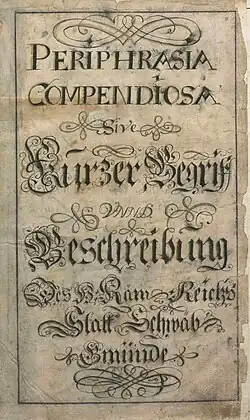 PERIPHRASIA
COMPENDIOSA
Sive
Kurzer Begriff
Unnd
Beschreibung
Des H. Röm. Reichs
Statt Schwäb.
Gmündt